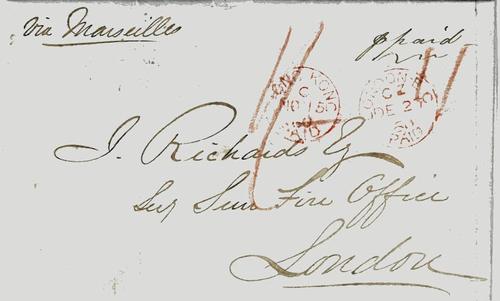 via Marseilles
ppaid
HONG KONG
C
LONDON-
CZ
DE
PAID
J. Richards Esq
Sun Fire Office
London